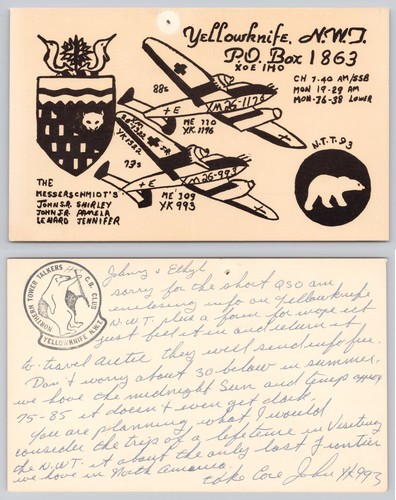 Yellowknife, N.W.T.
P.O. Box 1863
XOE 1HO
CH 7-40 AM/SSB
MON 19-29 AM
MON-36-38 LOWER
88s
+E
XM26-1176
ME 110
YK 1176
YK1322
N.T.T. 93
73s
+E
XM26-993
ME 109
YK 993
THE
MESSERSCHMIDT'S
JOHN SR. SHIRLEY
JOHN JR. PAMELA
LENARD JENNIFER
NORTHERN TOWER TALKERS C.B. CLUB
YELLOWKNIFE N.W.T.
Johnny & Ethyl
sorry for the short QSO am
enclosing info on Yellowknife
N.W.T. plus a form for more just
fill it in and return it
to travel Arctic they will send info free.
Don't worry about 30 below in summer.
we have the midnight Sun and temps approx
75-85 it doesn't even get dark.
You are planning what I would
consider the trip of a lifetime in Visiting
the N.W.T. it about the only last Frontier
we have in North America.
take Care John YK 993